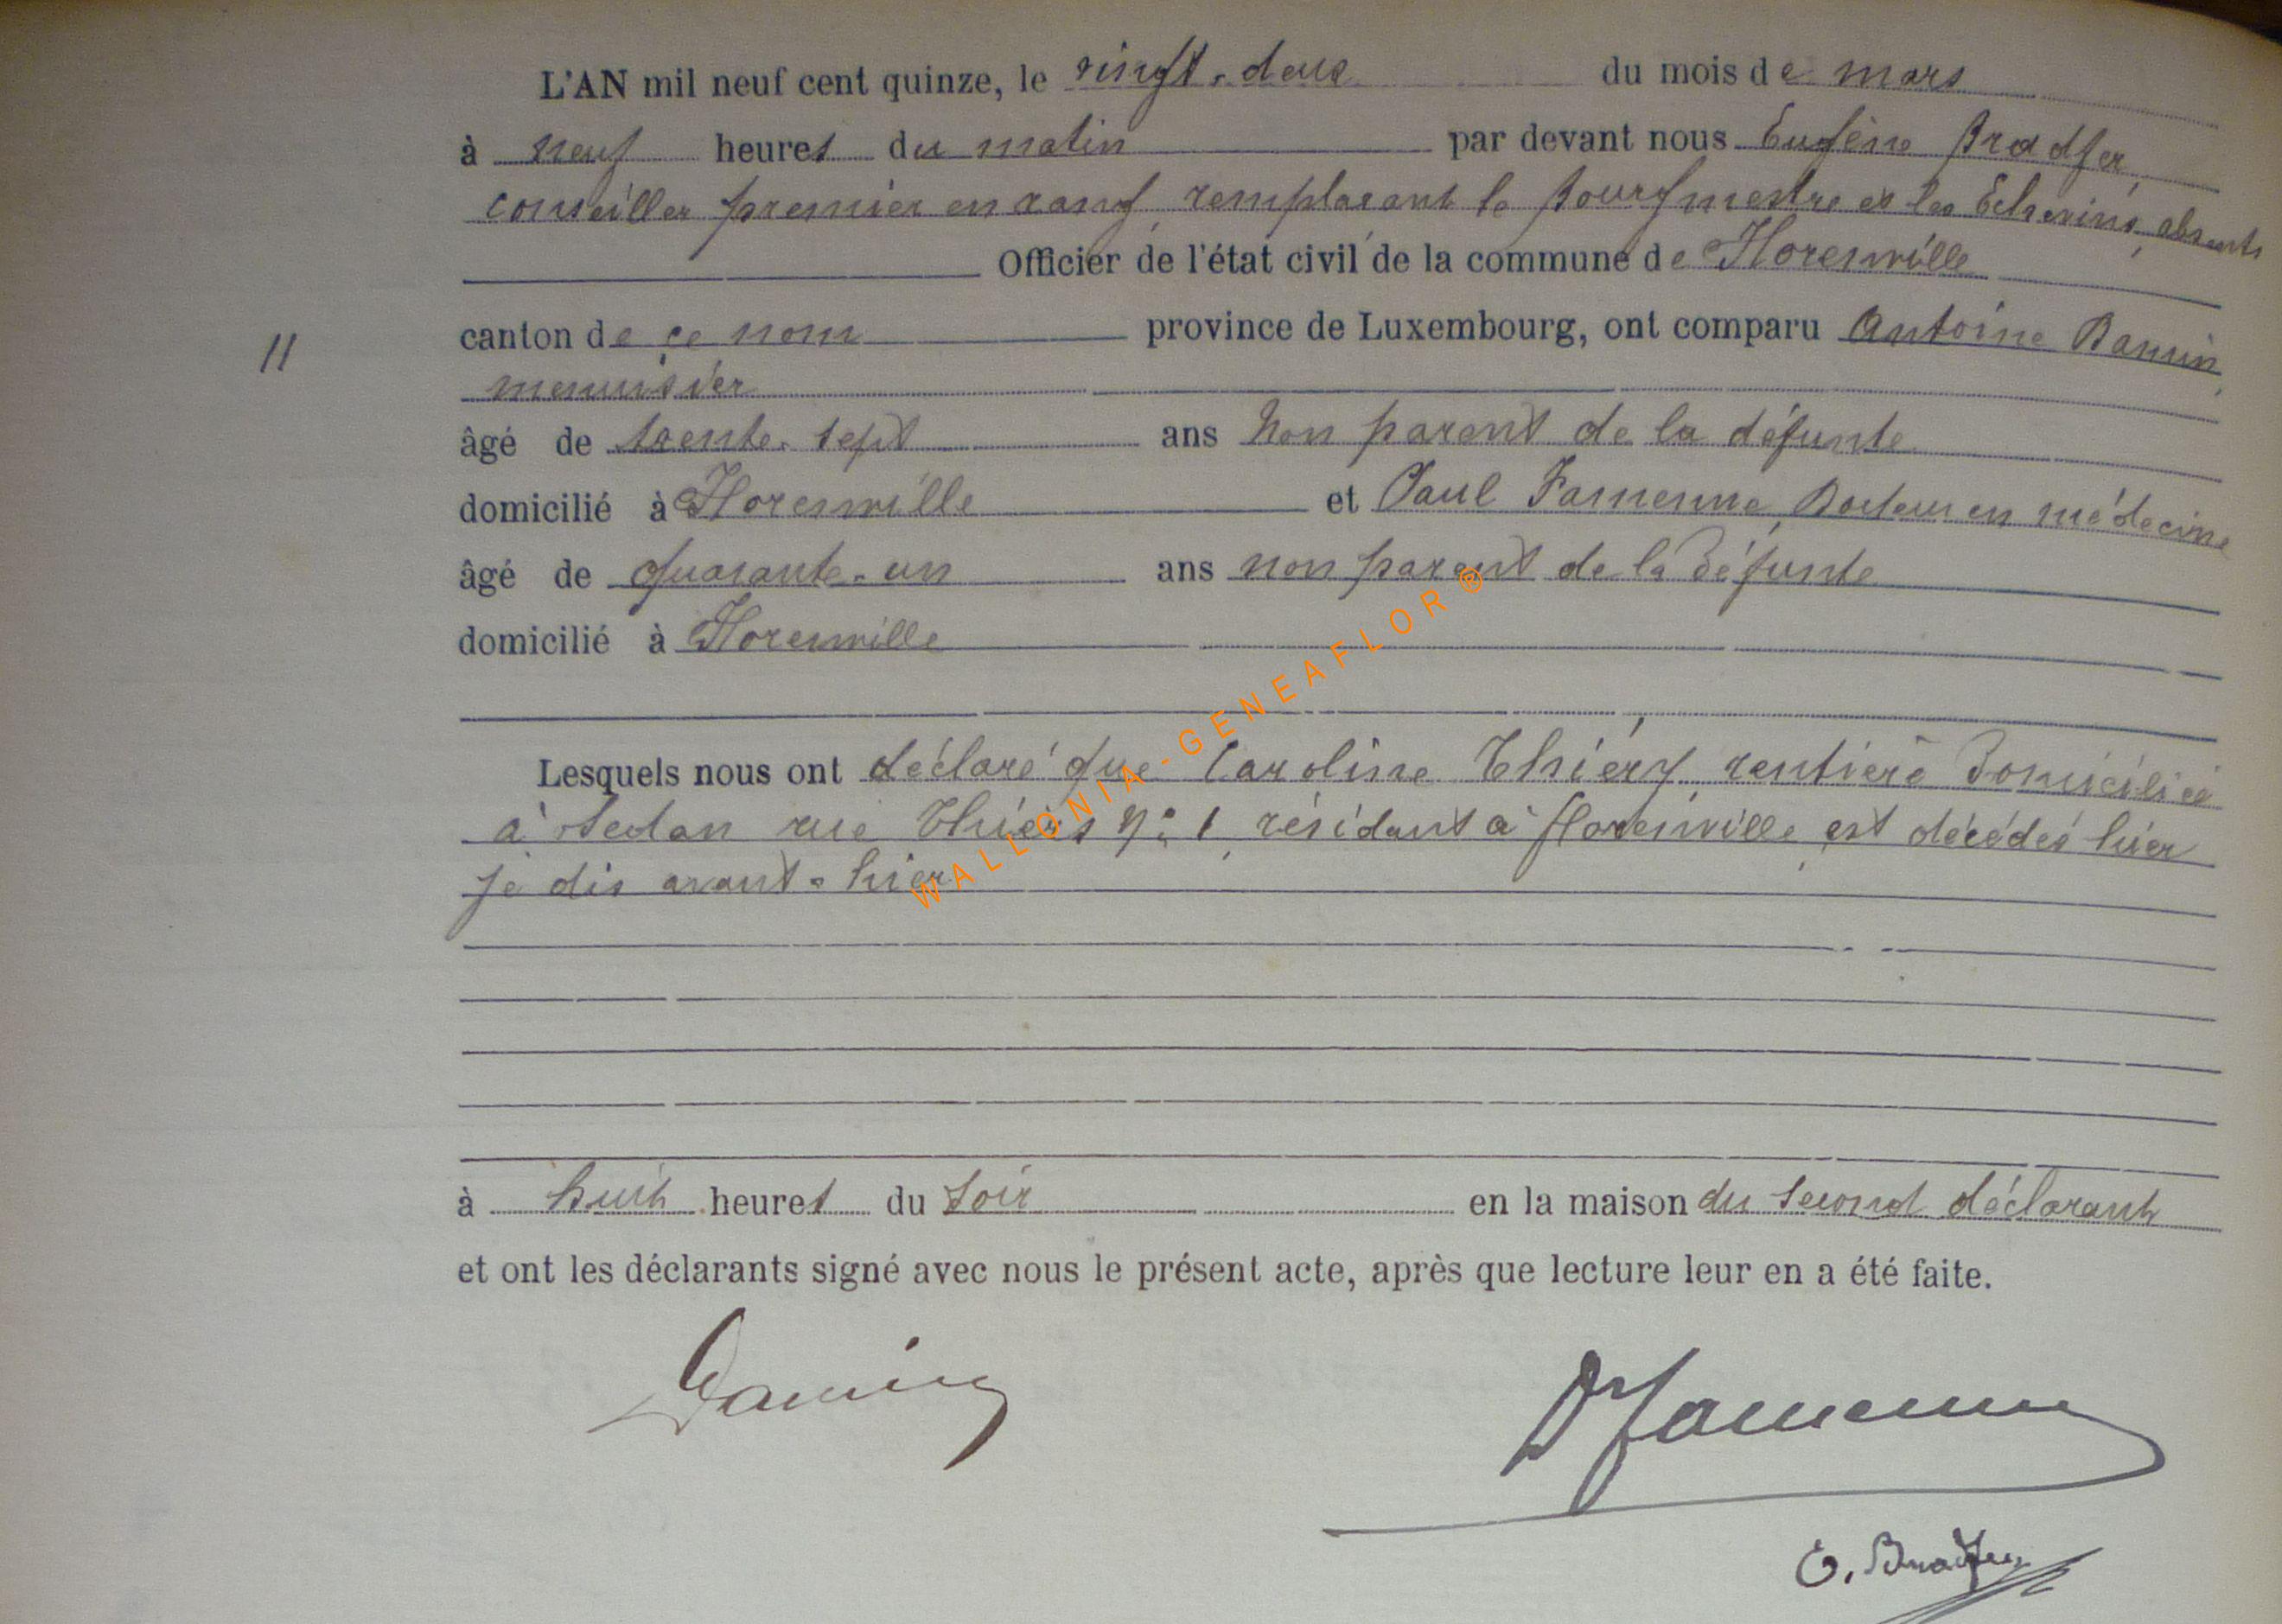 L'AN mil neuf cent quinze, le vingt-deux du mois de mars
à neuf heures du matin par devant nous Eugène Bradfer,
conseiller premier en rang, remplaçant le Bourgmestre et les Echevins, absents
Officier de l'état civil de la commune de Florenville
canton de ce nom province de Luxembourg, ont comparu Antoine Damin,
11
menuisier
âgé de trente-sept ans non parent de la défunte
domicilié à Florenville et Paul Famenne, Docteur en médecine
âgé de quarante-un ans non parent de la défunte
domicilié à Florenville
Lesquels nous ont déclaré que Caroline Thiéry, rentière domiciliée
à Sedan rue Thiers N° 1, résidant à Florenville, est décédée hier
je dis avant-hier
à huit heures du soir en la maison du second déclarant
et ont les déclarants signé avec nous le présent acte, après que lecture leur en a été faite.
Damin
Dr Famenne
E. Bradfer
WALLONIA-GENEAFLOR®